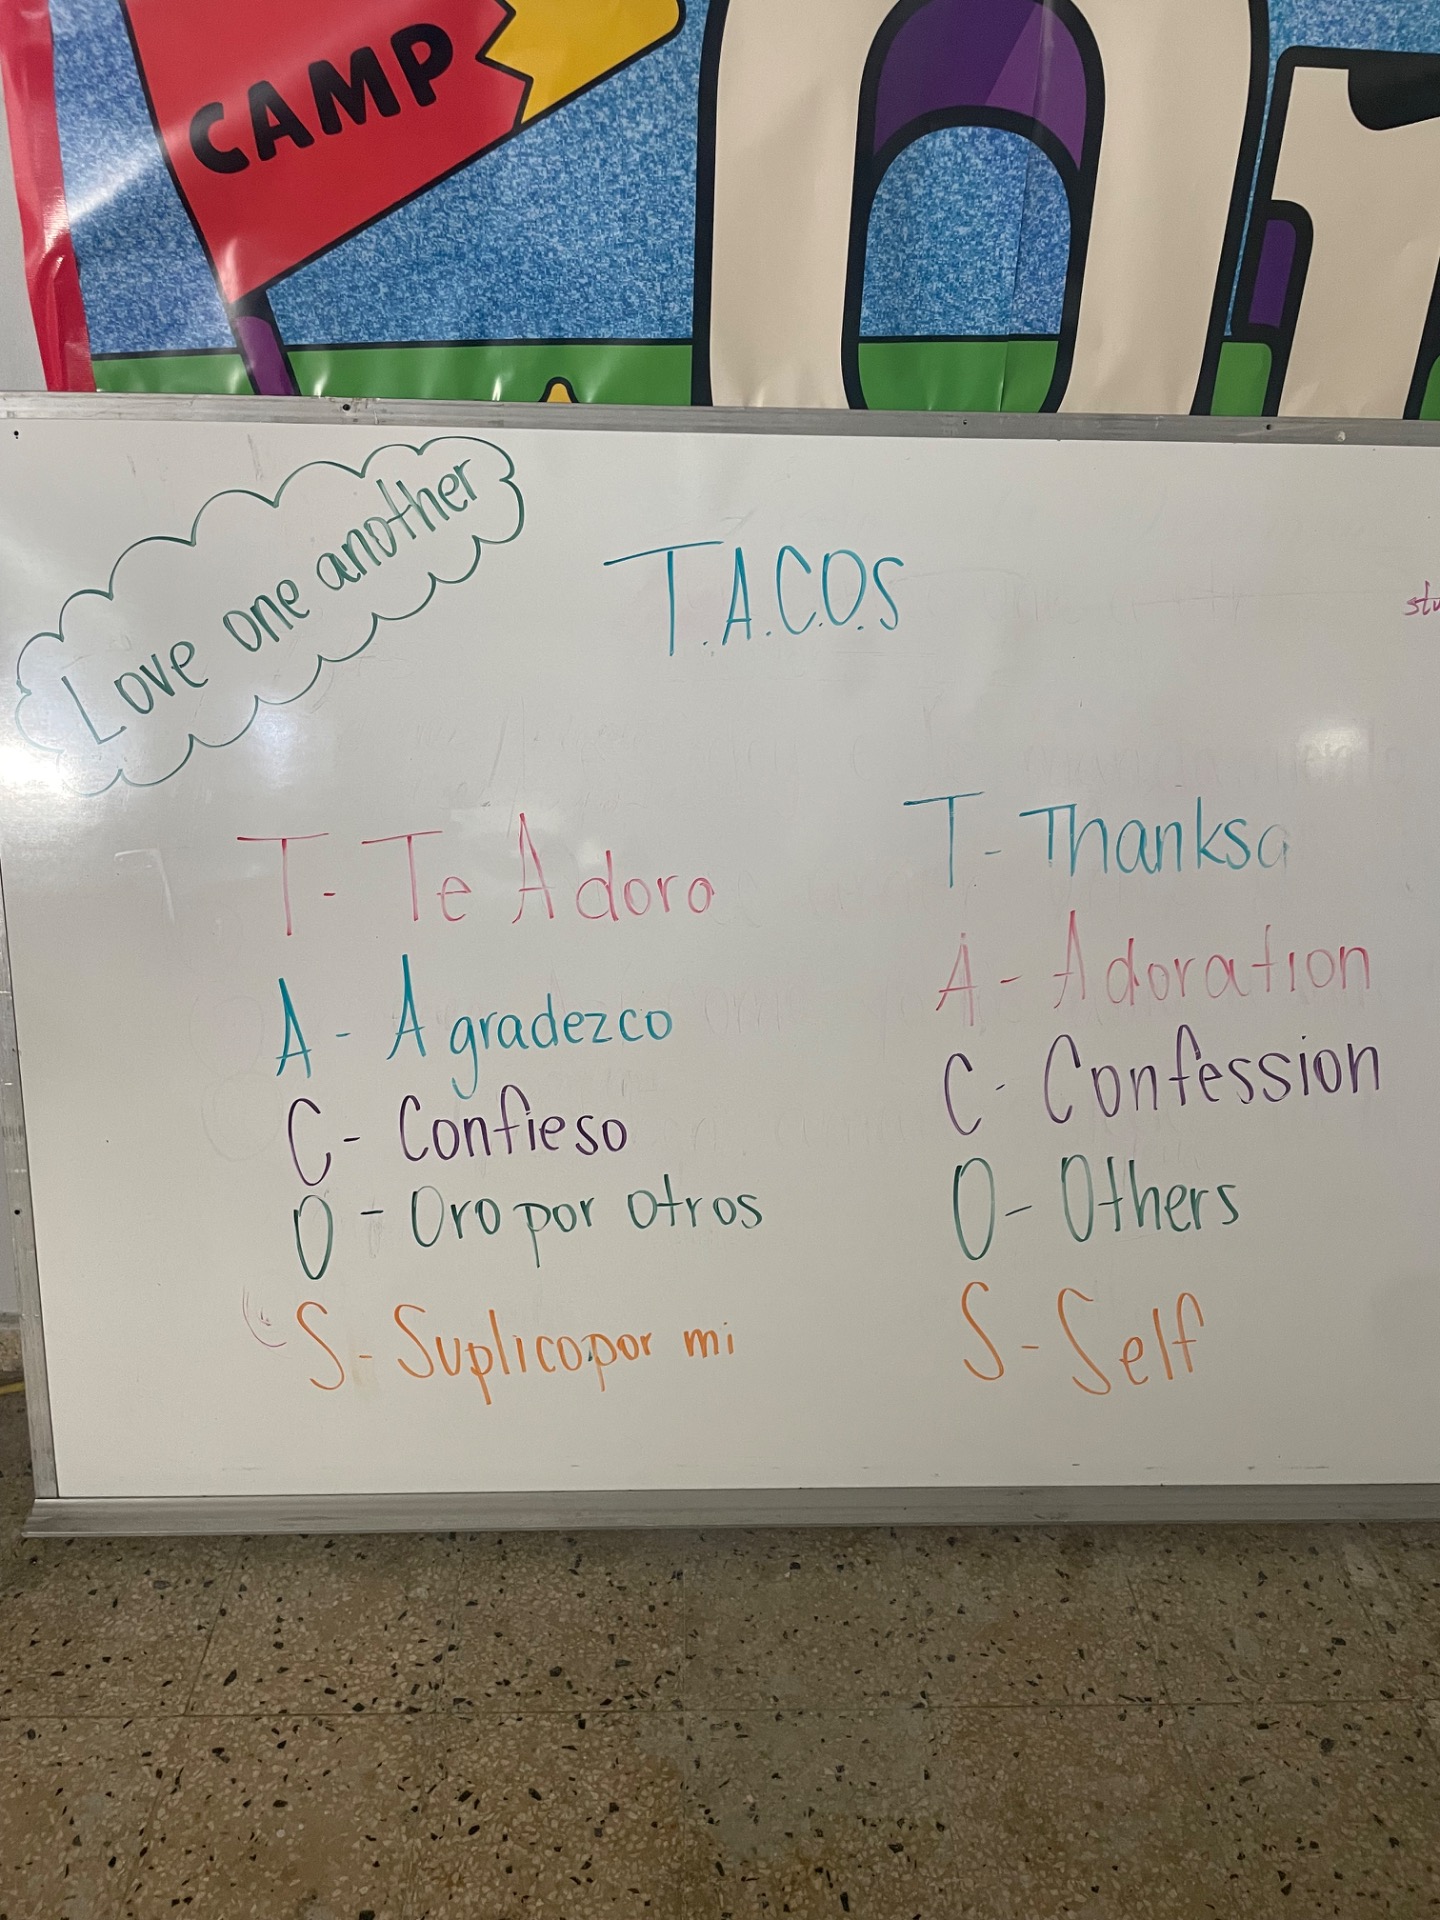 CAMP
Love one another
T.A.C.O.S
T- Te Adoro
A- Agradezco
C- Confieso
O- Oro por otros
S- Suplico por mi
T- Thanks
A- Adoration
C- Confession
O- Others
S- Self